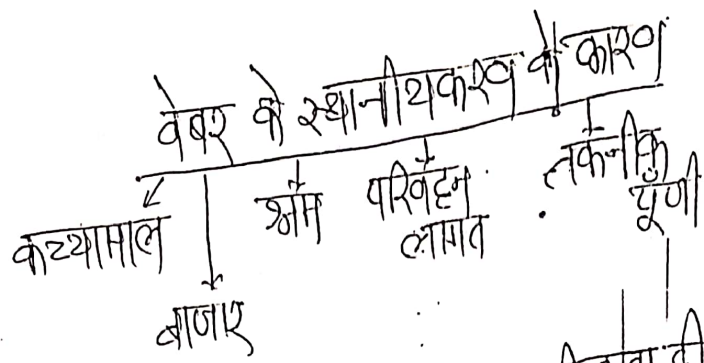 वेबर के स्थानीयकरण के कारण
कच्चामाल
बाजार
श्रम
परिवहन
लागत
तकनीक
पूँजी